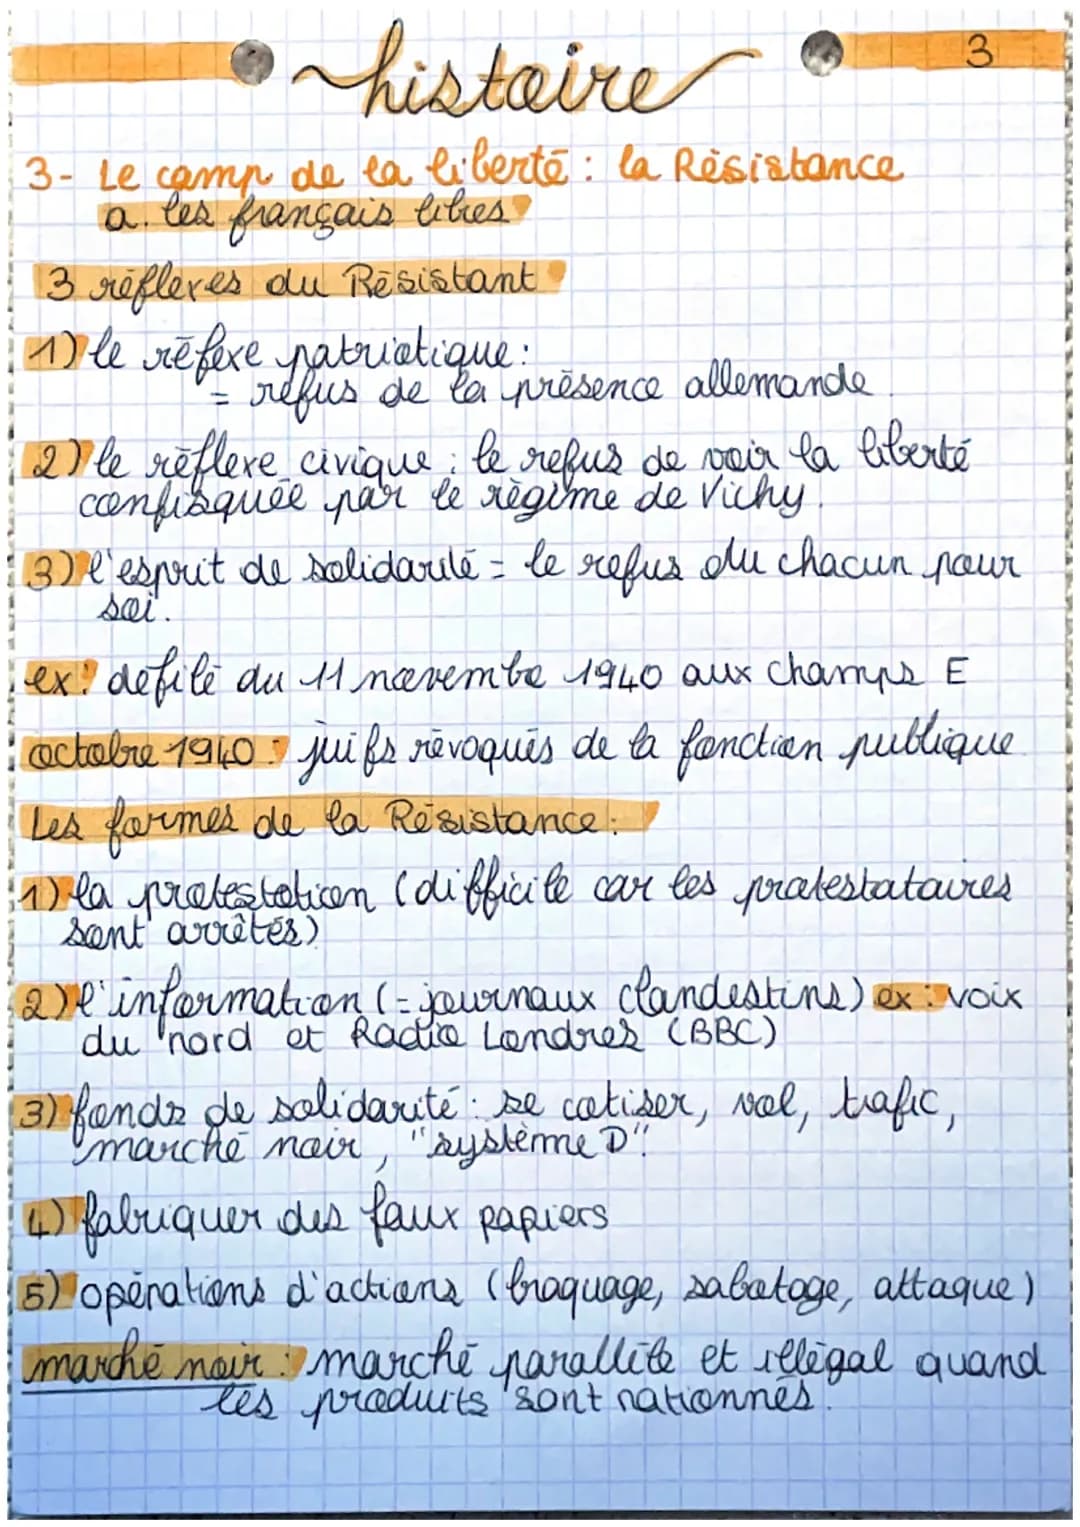 3
histoire
3- Le camp de la liberté : la Résistance
a. les français libres
3 réflexes du Résistant
1) le réfexe patriotique :
= refus de la présence allemande.
2) le réflexe civique : le refus de voir la liberté
confisquée par le régime de Vichy.
3) l'esprit de solidarité = le refus du chacun pour
soi.
ex : défilé du 11 novembe 1940 aux champs E
octobre 1940 : juifs révoqués de la fonction publique
Les formes de la Résistance :
1) la protestation (difficile car les protestataires
sont arrêtés)
2) l'information (= journaux clandestins) ex : voix
du nord et Radio Londres (BBC)
3) fonds de solidarité : se cotiser, vol, trafic,
marché noir, "système D".
4) fabriquer des faux papiers
5) opérations d'actions (braquage, sabotage, attaque)
marché noir : marché parallèle et illégal quand
les produits sont rationnés.